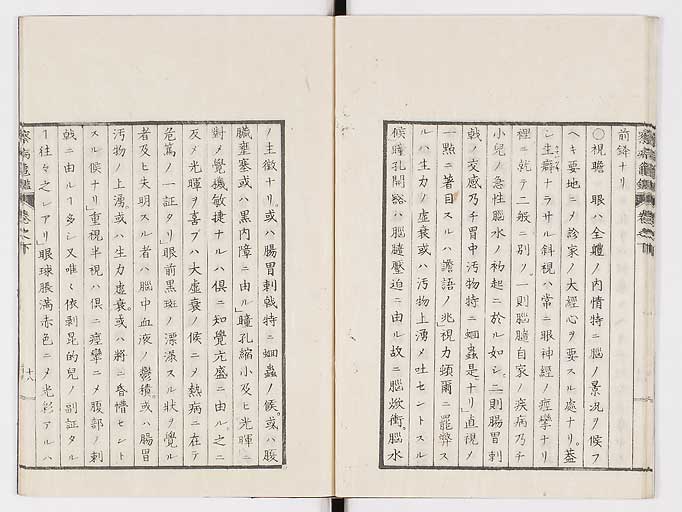 前鋒ナリ
〇視瞻 眼ハ全軆ノ内情特ニ腦ノ景況ヲ候フ
ヘキ要地ニメ診家ノ大經心ヲ要スル處ナリ。葢
シ生癖ナラサル斜視ハ常ニ眼神經ノ痙攣ナリ
裡ニ就テ二般ニ別ツ。一則腦髓自家ノ疾病乃チ
小兒ノ急性腦水ノ初起ニ於ル如シ。二則腸胃刺
戟ノ交感乃チ胃中汚物特ニ蛔蟲是ナリ」直視ノ
一點ニ著目スルハ譫語ノ兆」視力頓爾ニ罷弊ス
ルハ生力ノ虚衰或ハ汚物上湧メ吐セントスル
候」瞳孔開豁ハ腦髓壓迫ニ由ル故ニ腦焮衝。腦水
ノ主徴ナリ。或ハ腸胃刺戟特ニ蛔蟲ノ候。或ハ腹
臓壅塞或ハ黒内障ニ由ル」瞳孔縮小及ヒ光暉ニ
對メ覺機敏捷ナルハ倶ニ知覺亢盛ニ由ル。之ニ
反メ光暉ヲ喜フハ大虚衰ノ候ニメ熱病ニ在テ
危篤ノ一証タリ」眼前黒斑ノ漂蕩スル状ヲ覺ル
者及ヒ失明スル者ハ腦中血液ノ鬱積。或ハ腸胃
汚物ノ上湧。或ハ生力虚衰。或ハ將ニ昏懵セント
スル候ナリ」重視半視ハ倶ニ痙攣ニメ腹部ノ刺
戟ニ由ルヿ多シ又唯々依剥昆的兒ノ副証タル
ヿ往々之レアリ」眼球脹滿赤色ニメ光彩アルハ
察病龜鑑 卷之下
十八